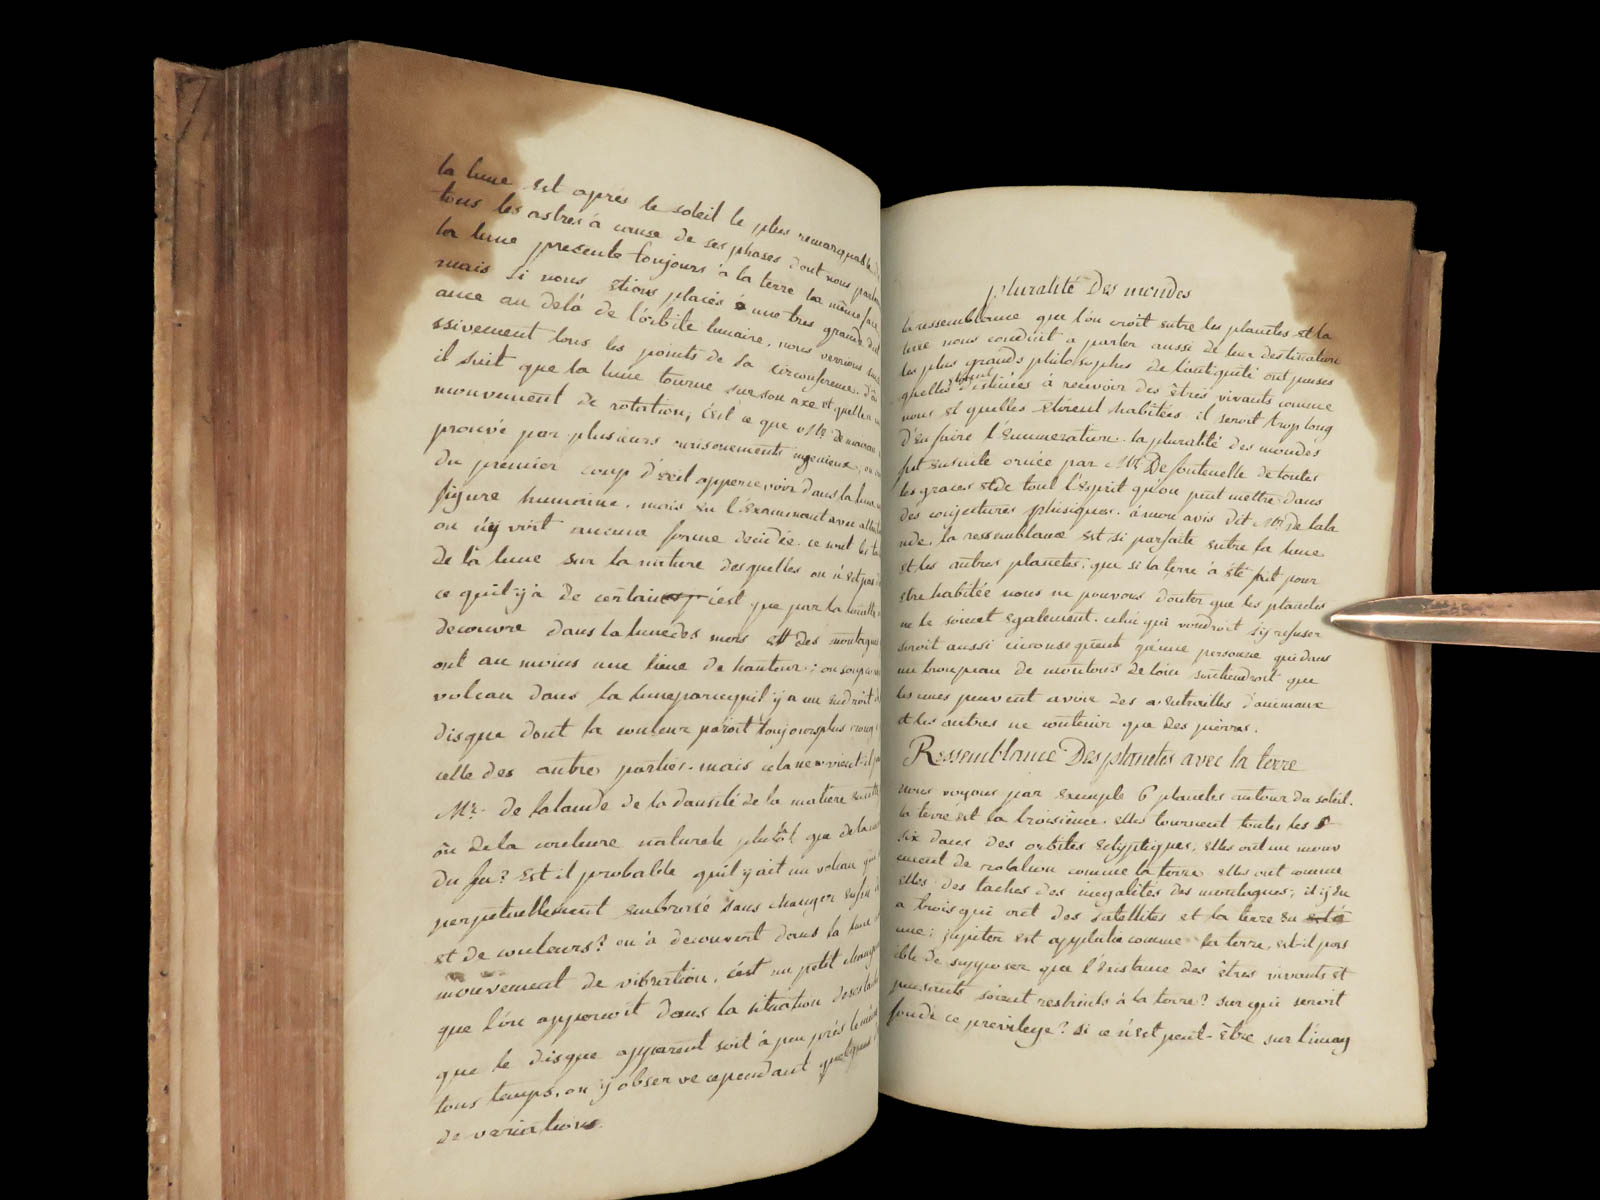 la lune est après le soleil le plus remarquable de
tous les astres à cause de ses phases dont nous parlons
la lune presente toujours à la terre la même face
mais si nous etions placés à une tres grande dist
ance au delà de l'orbite lunaire, nous verrions succe
ssivement tous les points de sa circonference. d'où
il suit que la lune tourne sur son axe et qu'elle a un
mouvement de rotation, c'est ce que Mr. De mairan
prouvé par plusieurs raisonements ingenieux, on
du premier coup d'œil appercevoir dans la lune
figure humaine, mais en l'examinant avec
on n'y voit aucune forme decidée. ce sont les
de la lune sur la nature desquelles on n'est pas
ce qu'il y à de certain c'est que par la
decouvre dans la lune des mers et des montagnes
ont au moins une lieue de hauteur; on
volcan dans la lune parcequ'il y a un endroit
disque dont la couleur paroit toujours plus rouge
celle des autres parties. mais cela ne
Mr. de lalande de la dansité de la matiere
ou de la couleure naturele plutôt que de la
du feu? Est il probable qu'il y ait un volcan
perpetuellement embrasé sans changer
et de couleurs? on à decouvert dans la lune
mouvement de vibration, c'est un petit
que l'on apperçoit dans la situation de ses taches
que le disque apparent soit à peu près le même
tous temps, on y observe cependant quelques
de variations.
pluralité Des mondes
la ressemblance que l'on croit entre les planetes et la
terre nous conduit a parler aussi de leur destination
les plus grands philosophes de l'antiquité ont penses
quelles etoient destinées à recevoir des êtres vivants comme
nous et quelles étoient habitées il seroit trop long
d'en faire l'énumeration. la pluralité des mondes
fut ensuite ornée par Mr. De fontenelle de toutes
les graces et de tout l'esprit qu'on peut mettre dans
des conjectures phisiques. à mon avis dit Mr. De lala
nde, la ressemblance est si parfaite entre la lune
et les autres planetes, que si la terre à été fait pour
etre habitée nous ne pouvons douter que les planetes
ne le soient egalement. celui qui voudroit s'y refuser
seroit aussi inconsequent qu'une personne qui dans
un troupeau de moutons de loin soutiendroit que
les unes peuvent avoir des entrailles d'animaux
et les autres ne contenir que des pierres.
Ressemblance Des planetes avec la terre
nous voyons par exemple 6 planetes autour du soleil.
la terre est la troisiéme. elles tournent toutes les
six dans des orbites eclyptiques, elles ont un mouv
ement de rotation comme la terre elles ont comme
elles des taches des inegalités des montagnes, il y en
a trois qui ont des satellites et la terre en
une; jupiter est applatie comme la terre, est-il poss
ible de supposer que l'existance des êtres vivants et
pensants soient restrints à la terre? sur qui seroit
fondé ce privilege? si ce n'est peut-être sur l'imag